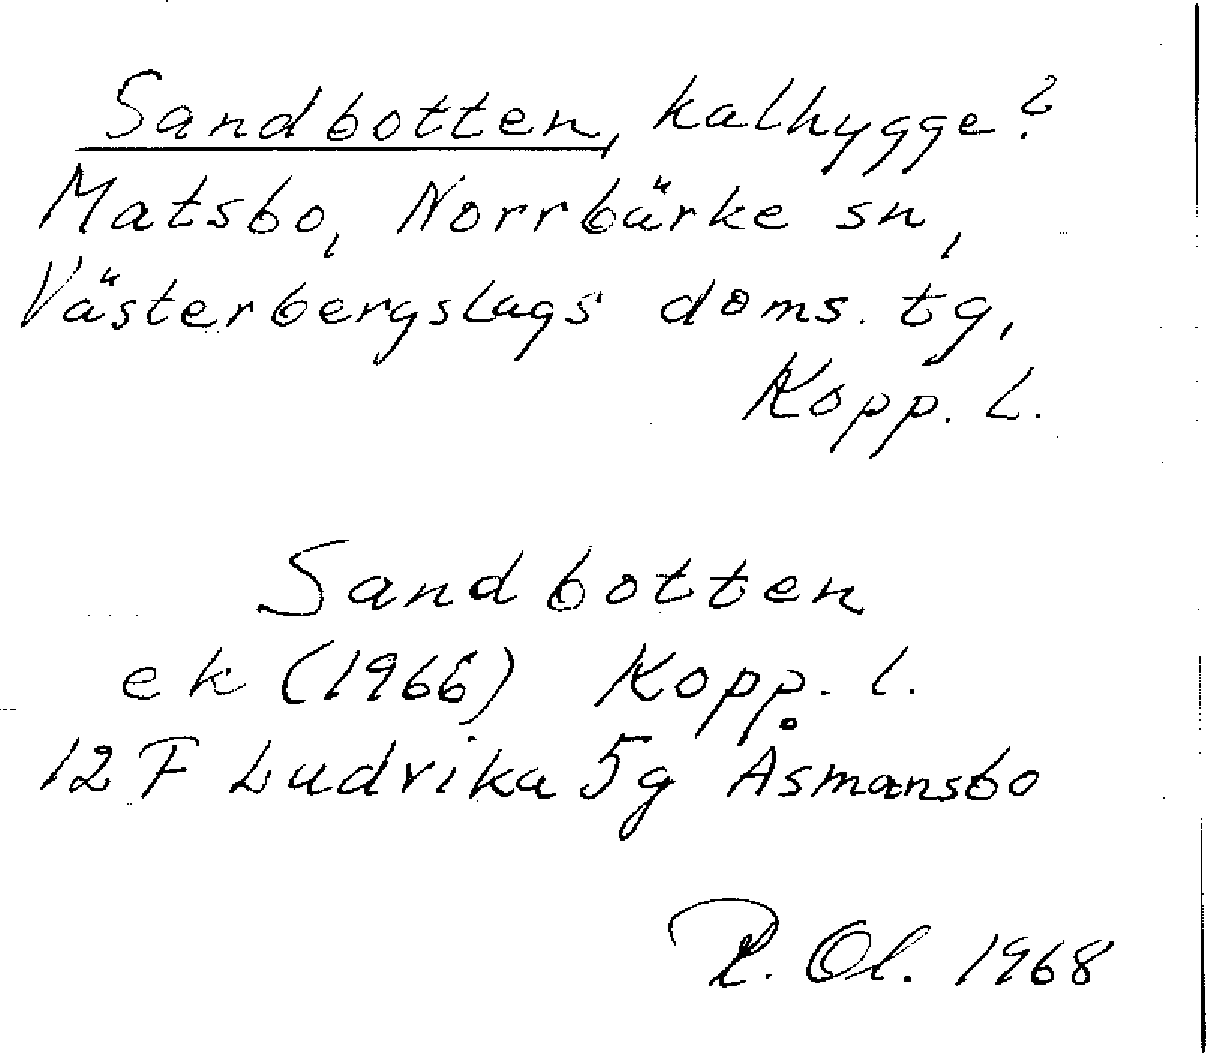 Sandbotten, kalhygge?
Matsbo, Norrbärke sn,
Västerbergslags doms. tg,
Kopp. L.
Sandbotten
ek (1966) Kopp. l.
12 F Ludvika 5g Åsmansbo
R. Ol. 1968